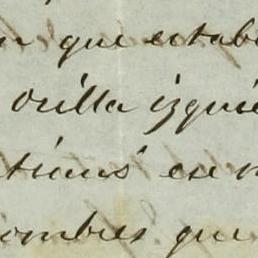 que estab
orilla izquie
tiraus en
ombres que